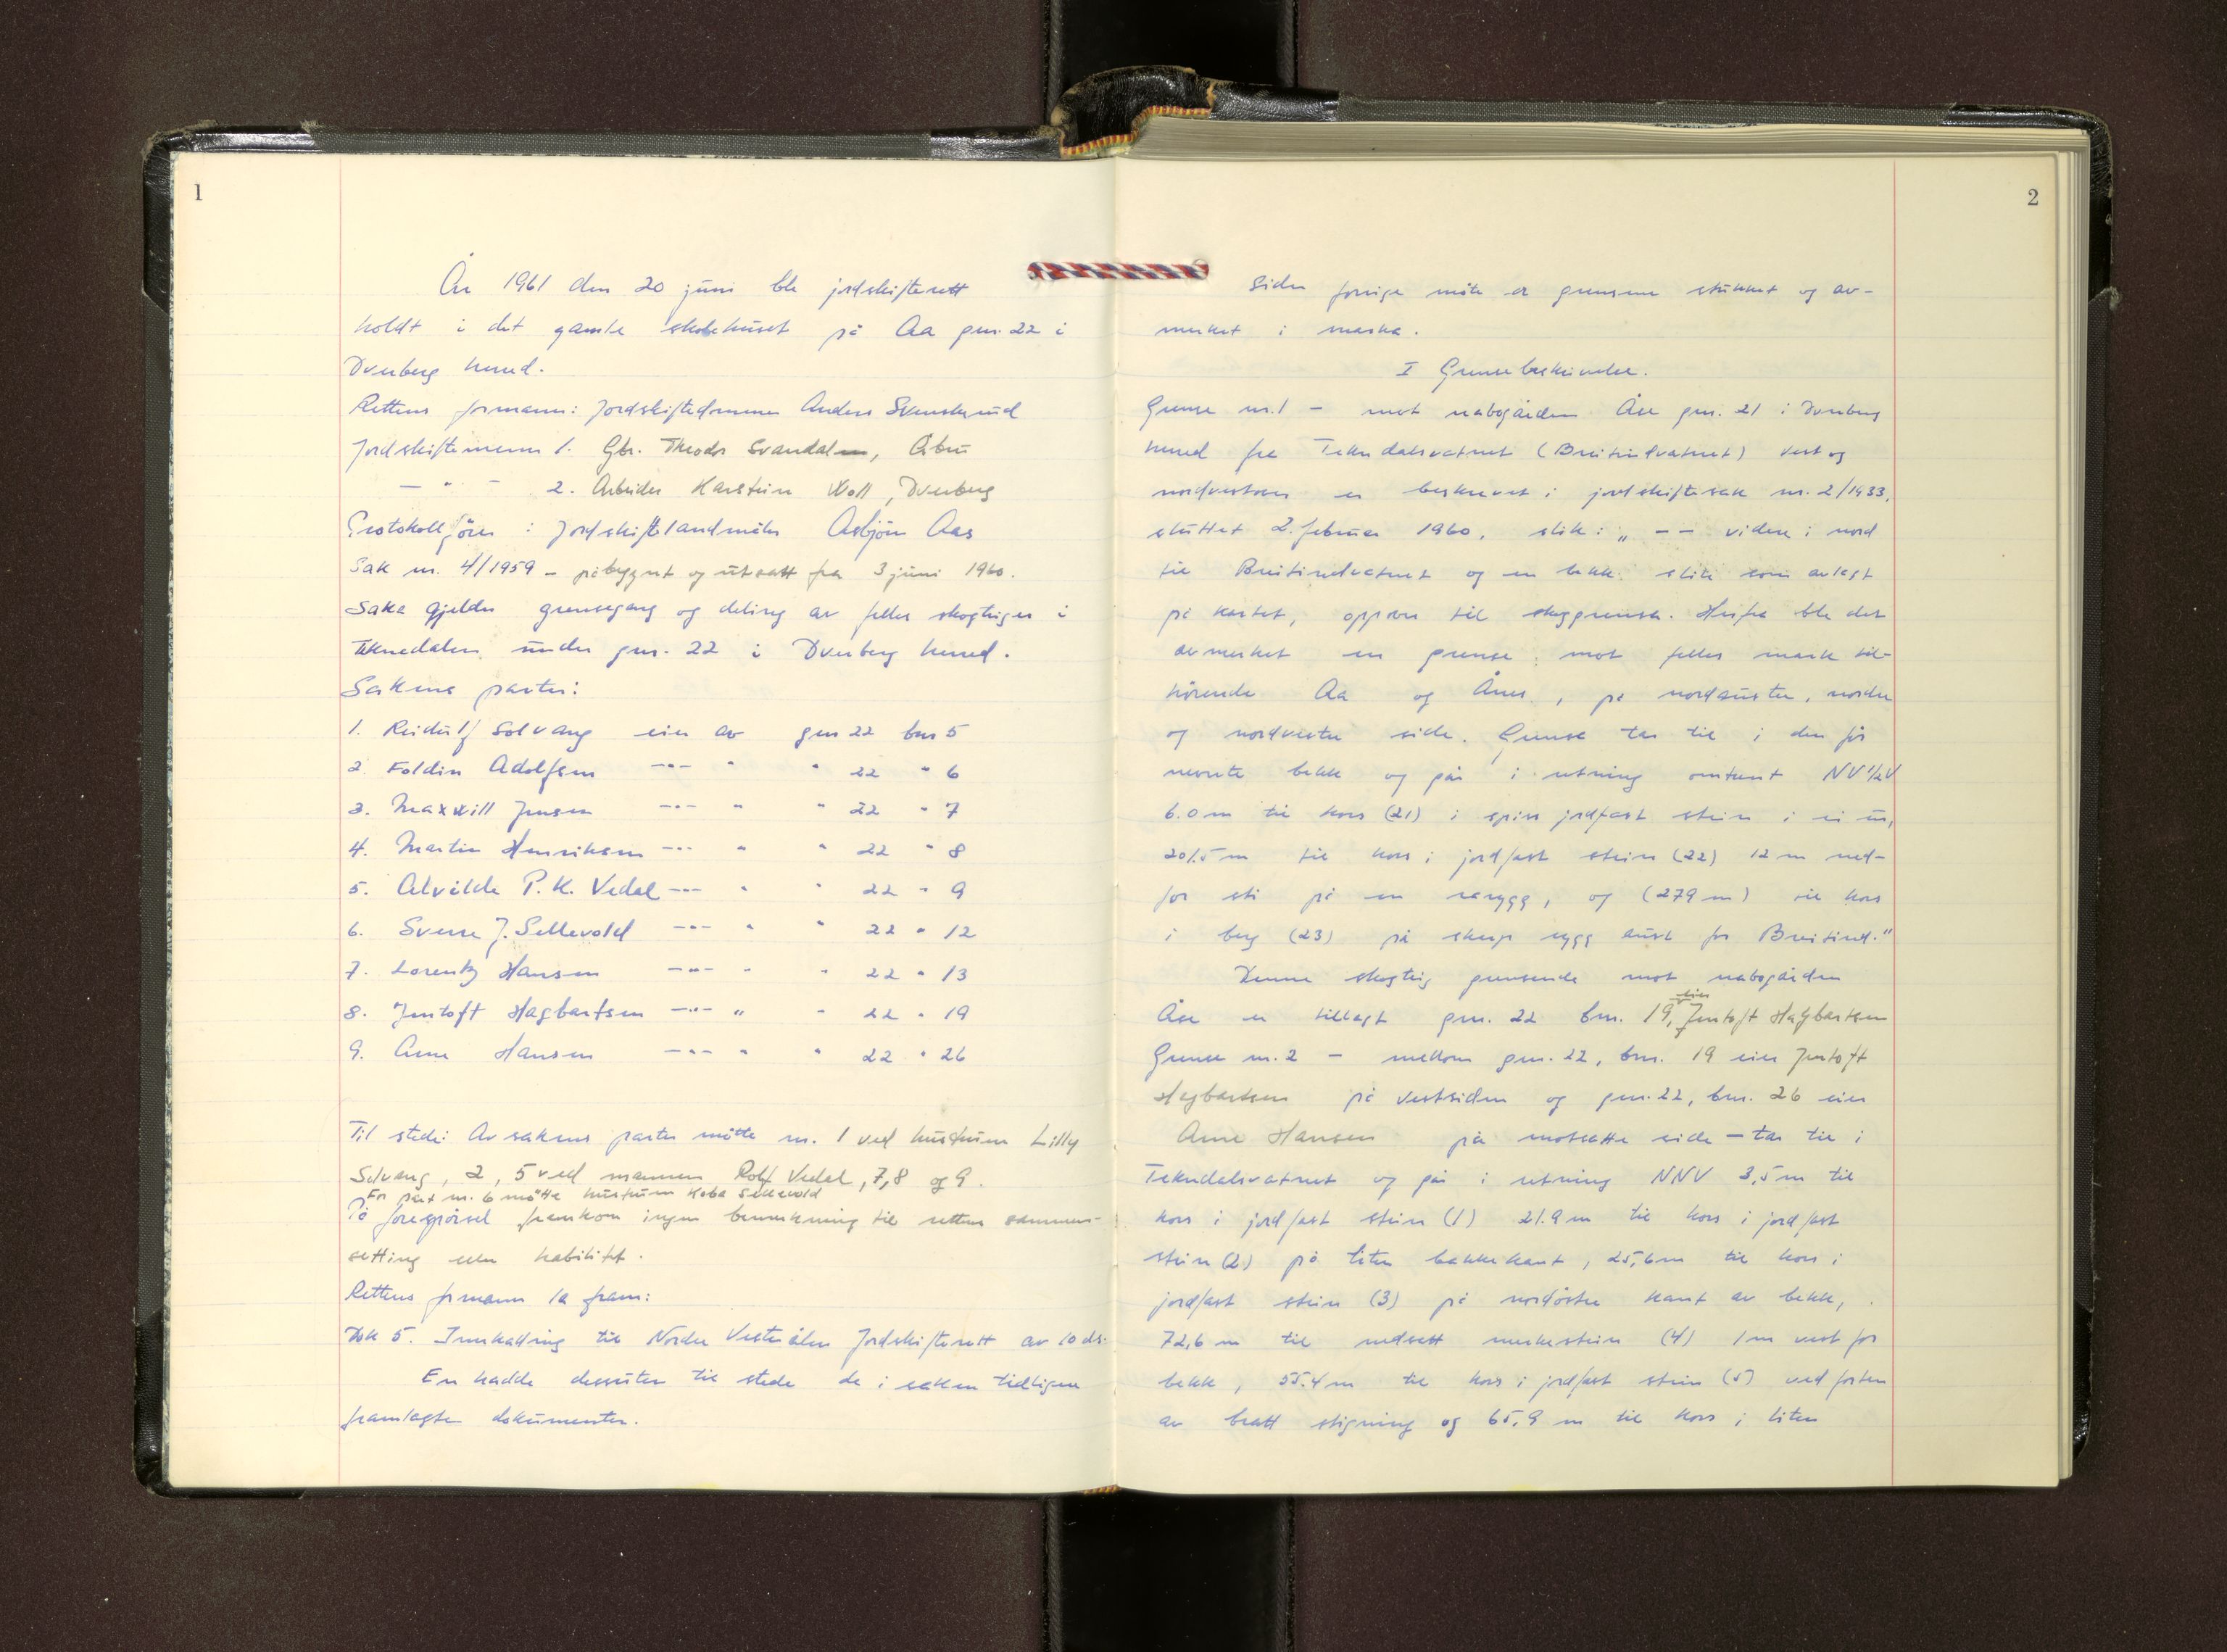 1
År 1961 den 20 juni ble jordskifterett
holdt i det gamle skolehuset på Aa gnr. 22 i
Dverberg herred.
Rettens formann: Jordskiftedommer Anders Svenskerud
Jordskiftemenn 1. Gbr. Theodor Svandalm, Åbu
— " — 2. Arbeider Harstein Woll, Dverberg
Protokollfører: Jordskiftelandmåler Asbjørn Aas
Sak nr. 4/1959 - påbegynt og utsatt fra 3 juni 1960.
Saka gjelder grensegang og deling av felles skogteiger i
Teknedalen under gnr. 22 i Dverberg herred.
Sakens parter:
1. Reidulf Solvang eier av gnr 22 bnr 5
2. Foldin Adolfsen —"— " " 22 " 6
3. Maxwill Jensen —"— " " 22 " 7
4. Martin Henriksen —"— " " 22 " 8
5. Alvilde P. K. Vedal —"— " " 22 " 9
6. Sverre J. Sellevold —"— " " 22 " 12
7. Lorentz Hansen —"— " " 22 " 13
8. Jentoft Hagbartsen —"— " " 22 " 19
9. Arne Hansen —"— " " 22 " 26
Til stede: Av sakens parter møtte nr. 1 ved hustruen Lilly
Solvang, 2, 5 ved mannen Rolf Vedal, 7, 8 og 9.
For part nr. 6 møtte hustruen Sellevold
På forespørsel framkom ingen bemerkning til rettens sammen-
setting eller habilitet.
Rettens formann la fram:
Dok 5. Innkalling til Nordre Vesterålen Jordskifterett av 10 ds.
En hadde dessuten til stede de i saken tidligere
framlagte dokumenter.
2
Siden forrige møte er grensene stukket og av-
merket i marka.
I Grensebeskrivelse.
Grense nr. 1 - mot nabogården Åse gnr. 21 i Dverberg
herred fra Teknedalsvatnet (Breitindvatnet) vest og
nordvestover er beskrevet i jordskiftesak nr. 2/1933,
sluttet 2. februar 1960, slik: „ -- videre i nord
til Breitindvatnet og en bekk slik som avlagt
på kartet, oppover til skoggrensa. Herfra ble det
avmerket en grense mot felles mark til-
hørende Aa og Ånes, på nordaustre, nordre
og nordvestre side. Grensa tar til i den før
nevnte bekk og går i retning omtrent NV½V
6.0 m til kors (21) i spiss jordfast stein i ei ur,
201.5 m til kors i jordfast stein (22) 12 m ned-
for sti på en rarygg, og (279 m) til kors
i berg (23) på skarp rygg aust for Breitind."
Denne skogteig grensende mot nabogården
Åse er tillagt gnr. 22 bnr. 19, eier Jentoft Hagbartsen
Grense nr. 2 - mellom gnr. 22, bnr. 19 eier Jentoft
Hagbartsen på vestsiden og gnr. 22, bnr. 26 eier
Arne Hansen på motsatte side - tar til i
Teknedalsvatnet og går i retning NNV 3,5 m til
kors i jordfast stein (1) 21.9 m til kors i jordfast
stein (2) på liten bakkekant, 25,6 m til kors i
jordfast stein (3) på nordøstre kant av bekk,
72,6 m til nedsatt merkestein (4) 1 m vest for
bekk, 55.4 m til kors i jordfast stein (5) ved foten
av bratt stigning og 65,9 m til kors i liten